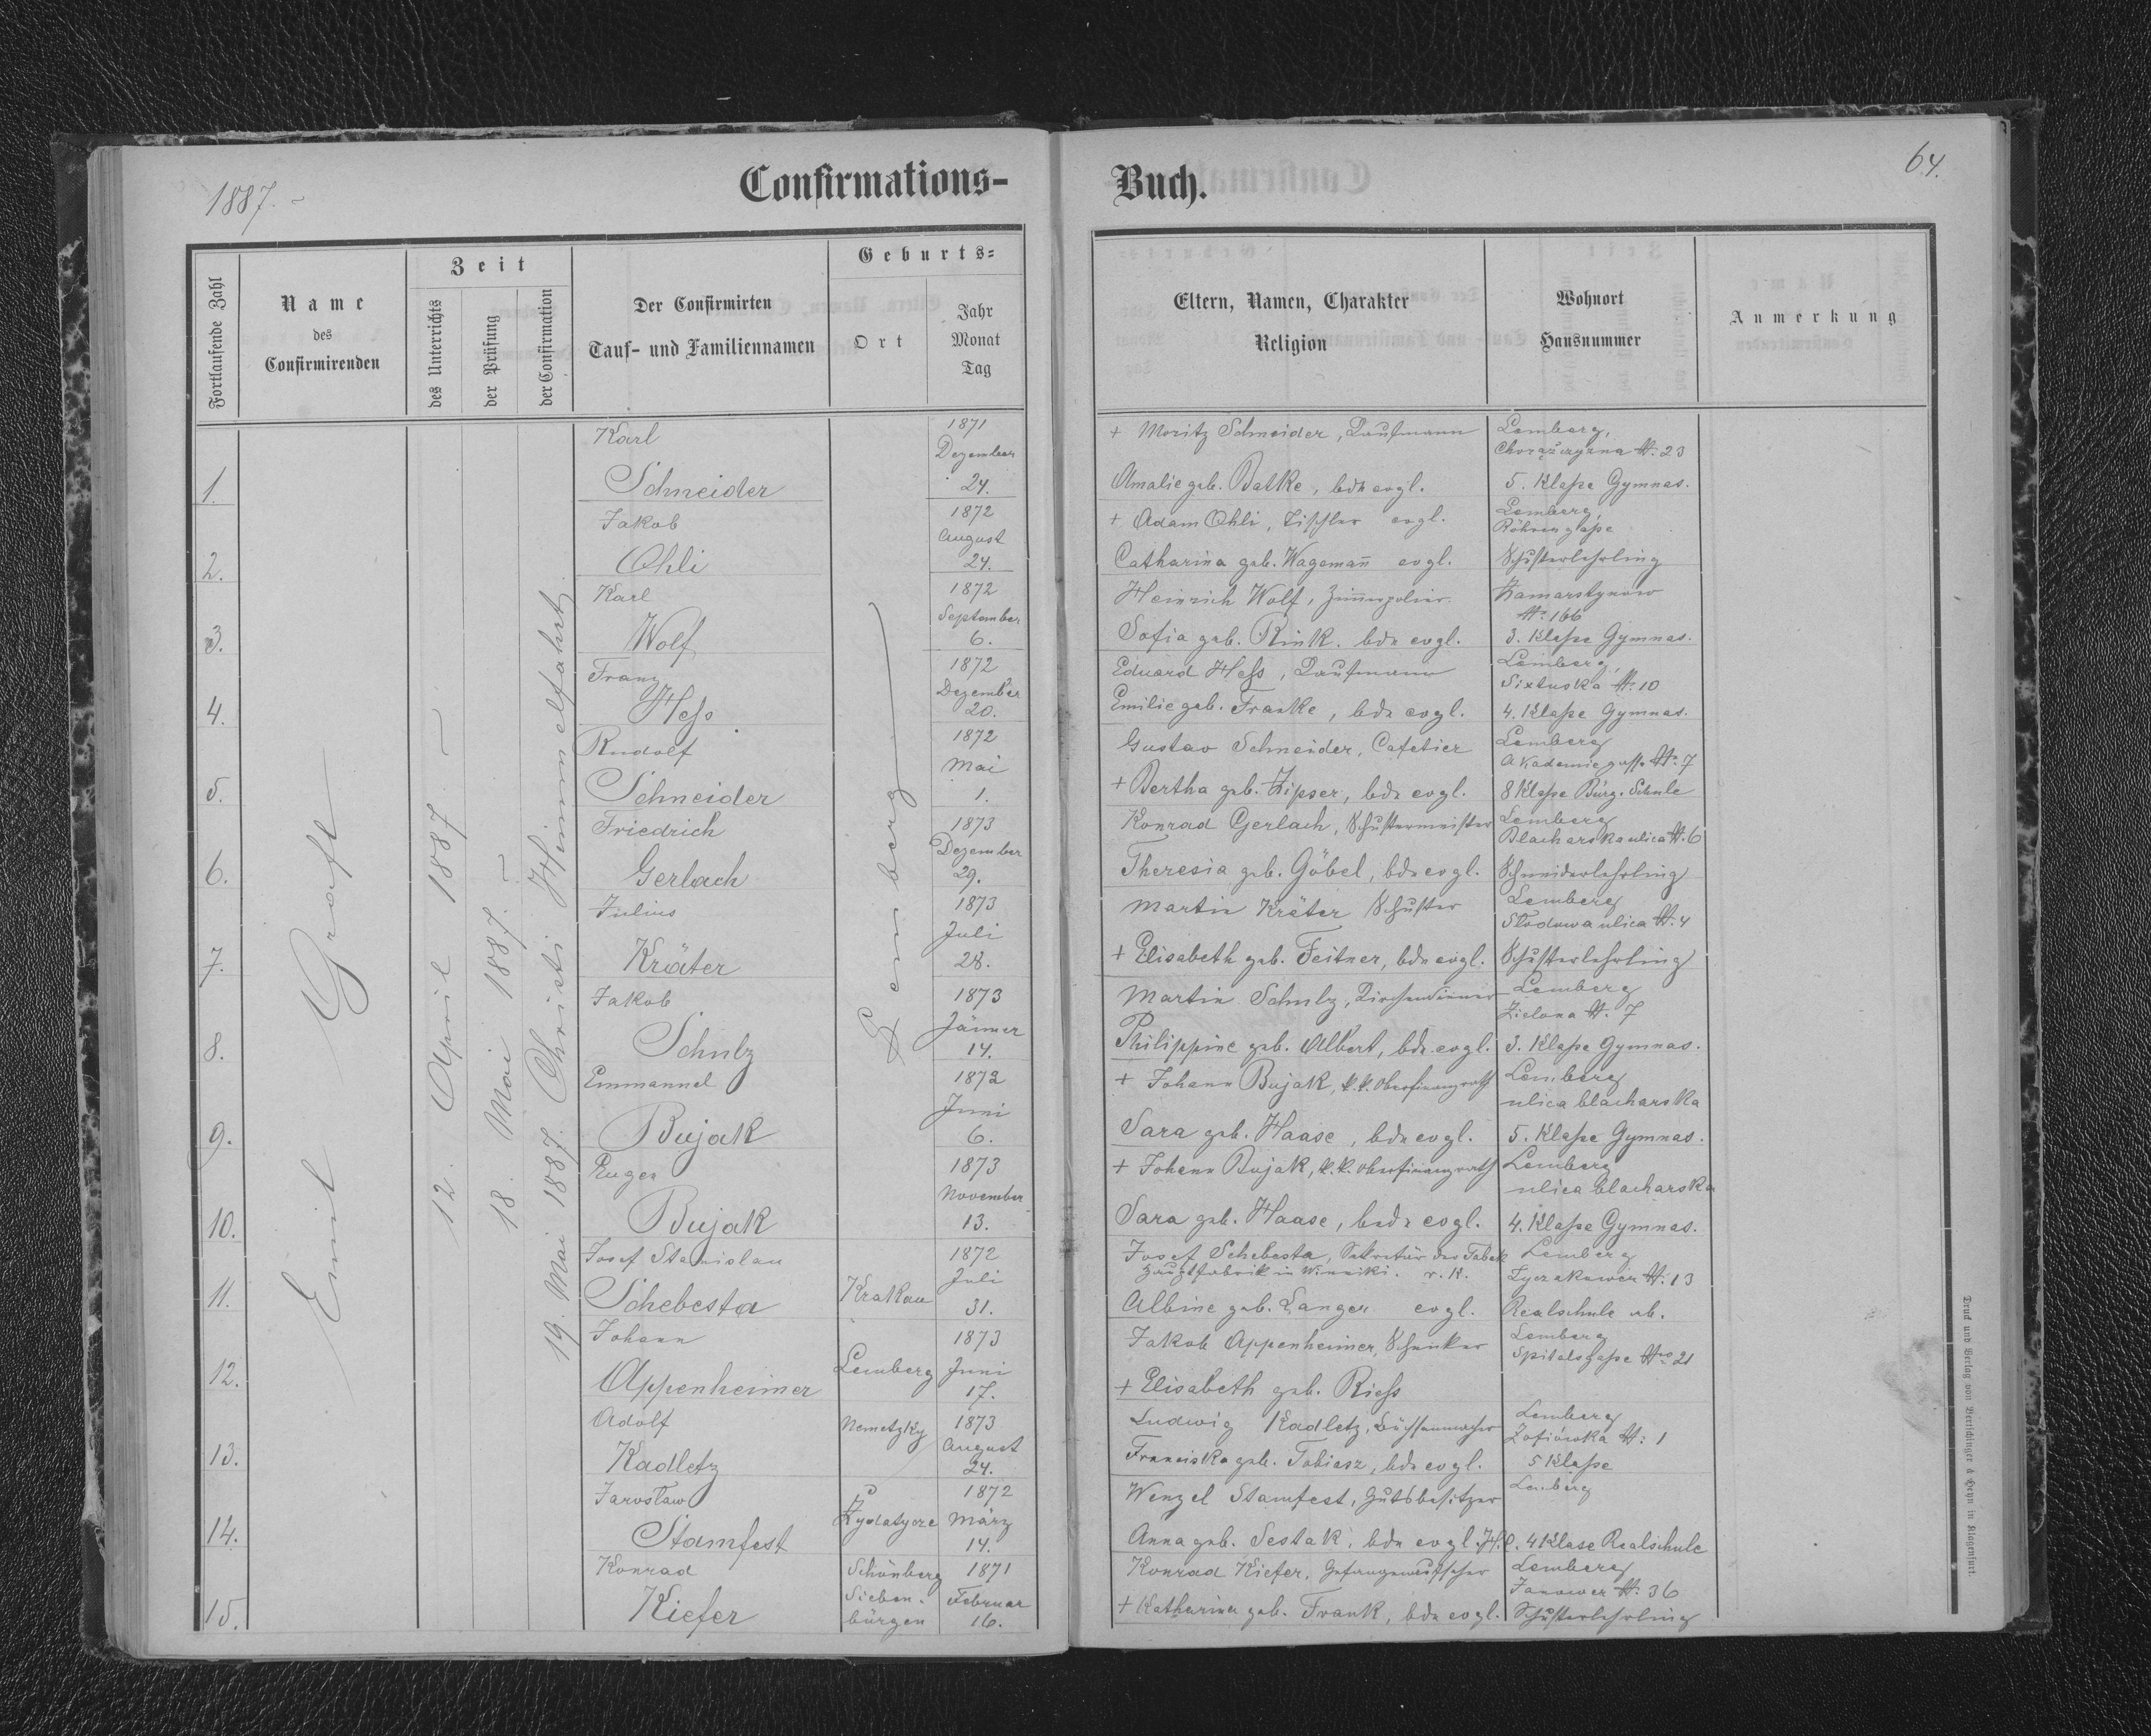 1887.
Confirmations-
Fortlaufende Zahl
Name
des
Confirmirenden
Zeit
des Unterrichts
der Prüfung
der Confirmation
Der Confirmirten
Tauf- und Familiennamen
Geburts-
Ort
Jahr
Monat
Tag
Emil Graft
12. April 1887.
18. Mai 1887.
19. Mai 1887. Christi Himmelfahrt
Lemberg
1.
Karl
Schneider
1871
Dezember
24.
2.
Jakob
Ohli
1872
August
24.
3.
Karl
Wolf
1872
September
6.
4.
Franz
Heß
1872
Dezember
20.
5.
Rudolf
Schneider
1872
Mai
1.
6.
Friedrich
Gerlach
1873
Dezember
29.
7.
Julius
Kräter
1873
Juli
28.
8.
Jakob
Schulz
1873
Jänner
14.
9.
Emmanuel
Bujak
1872
Juni
6.
10.
Eugen
Bujak
1873
November
13.
11.
Josef Stanislau
Schebesta
Krakau
1872
Juli
31.
12.
Johann
Appenheimer
Lemberg
1873
Juni
17.
13.
Adolf
Kadletz
Nemetzky
1873
August
24.
14.
Jarosław
Stamfest
1872
März
14.
15.
Konrad
Kiefer
Schönberg
Sieben-
bürgen
1871
Februar
16.
Buch.
64.
Eltern, Namen, Charakter
Religion
Wohnort
Hausnummer
Anmerkung
+ Moritz Schneider, Kaufmann
Amalie geb. Batke, bde evgl.
Lemberg,
Chorążczyzna No. 23
5. Klaße Gymnas.
+ Adam Ohli, Tischler evgl.
Catharina geb. Wagemañ evgl.
Lemberg,
Röhrengaße
Schusterlehrling
Heinrich Wolf, Zim̅erpolier.
Sofia geb. Rink. bde evgl.
Kamarstynow
No. 166
3. Klaße Gymnas.
Eduard Heß, Kaufmann
Emilie geb. Franke, bde evgl.
Lemberg,
Sixtuska No. 10
4. Klaße Gymnas.
Gustav Schneider, Cafetier
+ Bertha geb. Zipser, bde evgl.
Lemberg
Akademiegasse No. 7
8 Klaße Bürg. Schule
Konrad Gerlach, Schustermeister
Theresia geb. Göbel, bde evgl.
Lemberg
Blacharska ulica No. 6
Schneiderlehrling
Martin Kräter Schuster
+ Elisabeth geb. Feitner, bde evgl.
Lemberg
Słodowa ulica No. 4
Schusterlehrling
Martin Schulz, Kirchendiener
Philippine geb. Albert, bde evgl.
Lemberg
Zielona No. 7
3. Klaße Gymnas.
+ Johann Bujak, k.k. Oberfinanzrath
Sara geb. Haase, bde evgl.
Lemberg
ulica blacharska
5. Klaße Gymnas.
+ Johann Bujak, k.k. Oberfinanzrath
Sara geb. Haase, bede evgl.
Lemberg
ulica blacharska
4. Klaße Gymnas.
Josef Schebesta, Sekretär der Tabak
Hauptfabrik in Winniki. r. k.
Albine geb. Langer evgl.
Lemberg
Lyczakower No. 13
Realschule ab.
Jakob Appenheimer, Schenker
+ Elisabeth geb. Rieß
Lemberg
Spitalsgaße No 21
Ludwig Kadletz, Büchsenmacher
Franciska geb. Tobiasz, bde evgl.
Lemberg
Zofiówka No. 1
5 Klaße
Wenzel Stamfest, Gutsbesitzer
Anna geb. Sestak, bde evgl. H.C.
Lemberg
4 Klase Realschule
Konrad Kiefer, Gefangenaufseher
+ Katharina geb. Frank, bde evgl.
Lemberg
Janower No. 36
Schusterlehrling
Druck und Verlag von Bertschinger & Heyn in Klagenfurt.